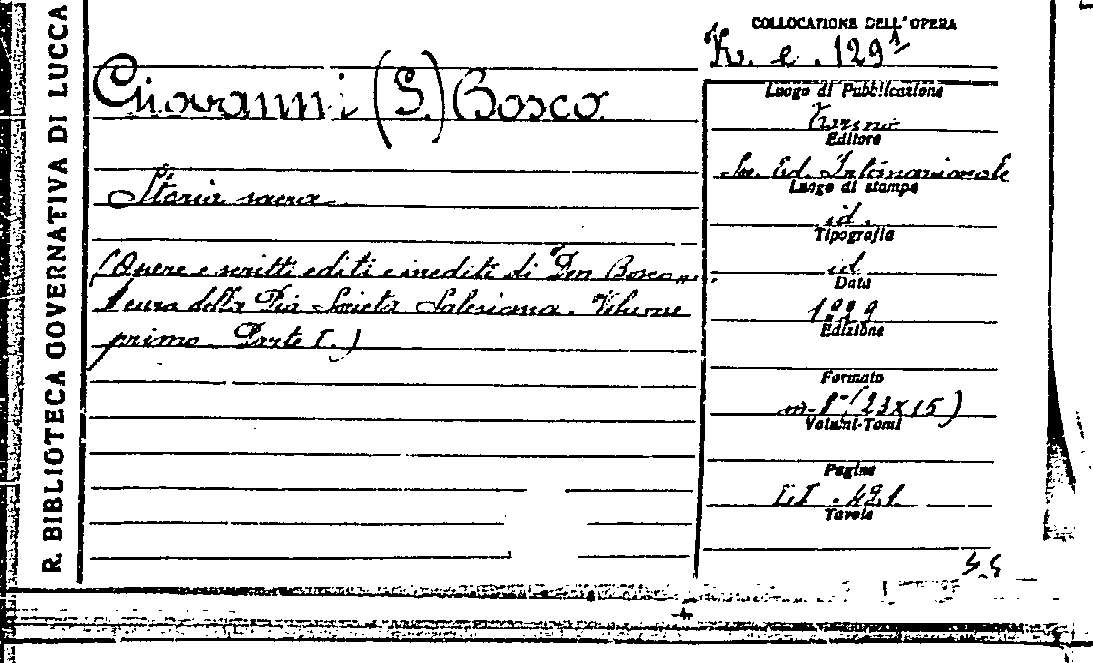 R. BIBLIOTECA GOVERNATIVA DI LUCCA
Giovanni (S.) Bosco
Storia sacra
(Opere e scritti editi e inediti di Don Bosco
a cura della Pia Società Salesiana. Volume
primo Parte I.)
COLLOCATIONE DELL'OPERA
K. e. 129¹
Luogo di Pubblicazione
Torino
Editore
Soc. Ed. Internazionale
Luogo di stampa
id.
Tipografia
id
Data
1929
Edizione
Formato
in-8° (23x15)
Volumi-Tomi
Pagine
421
Tavole